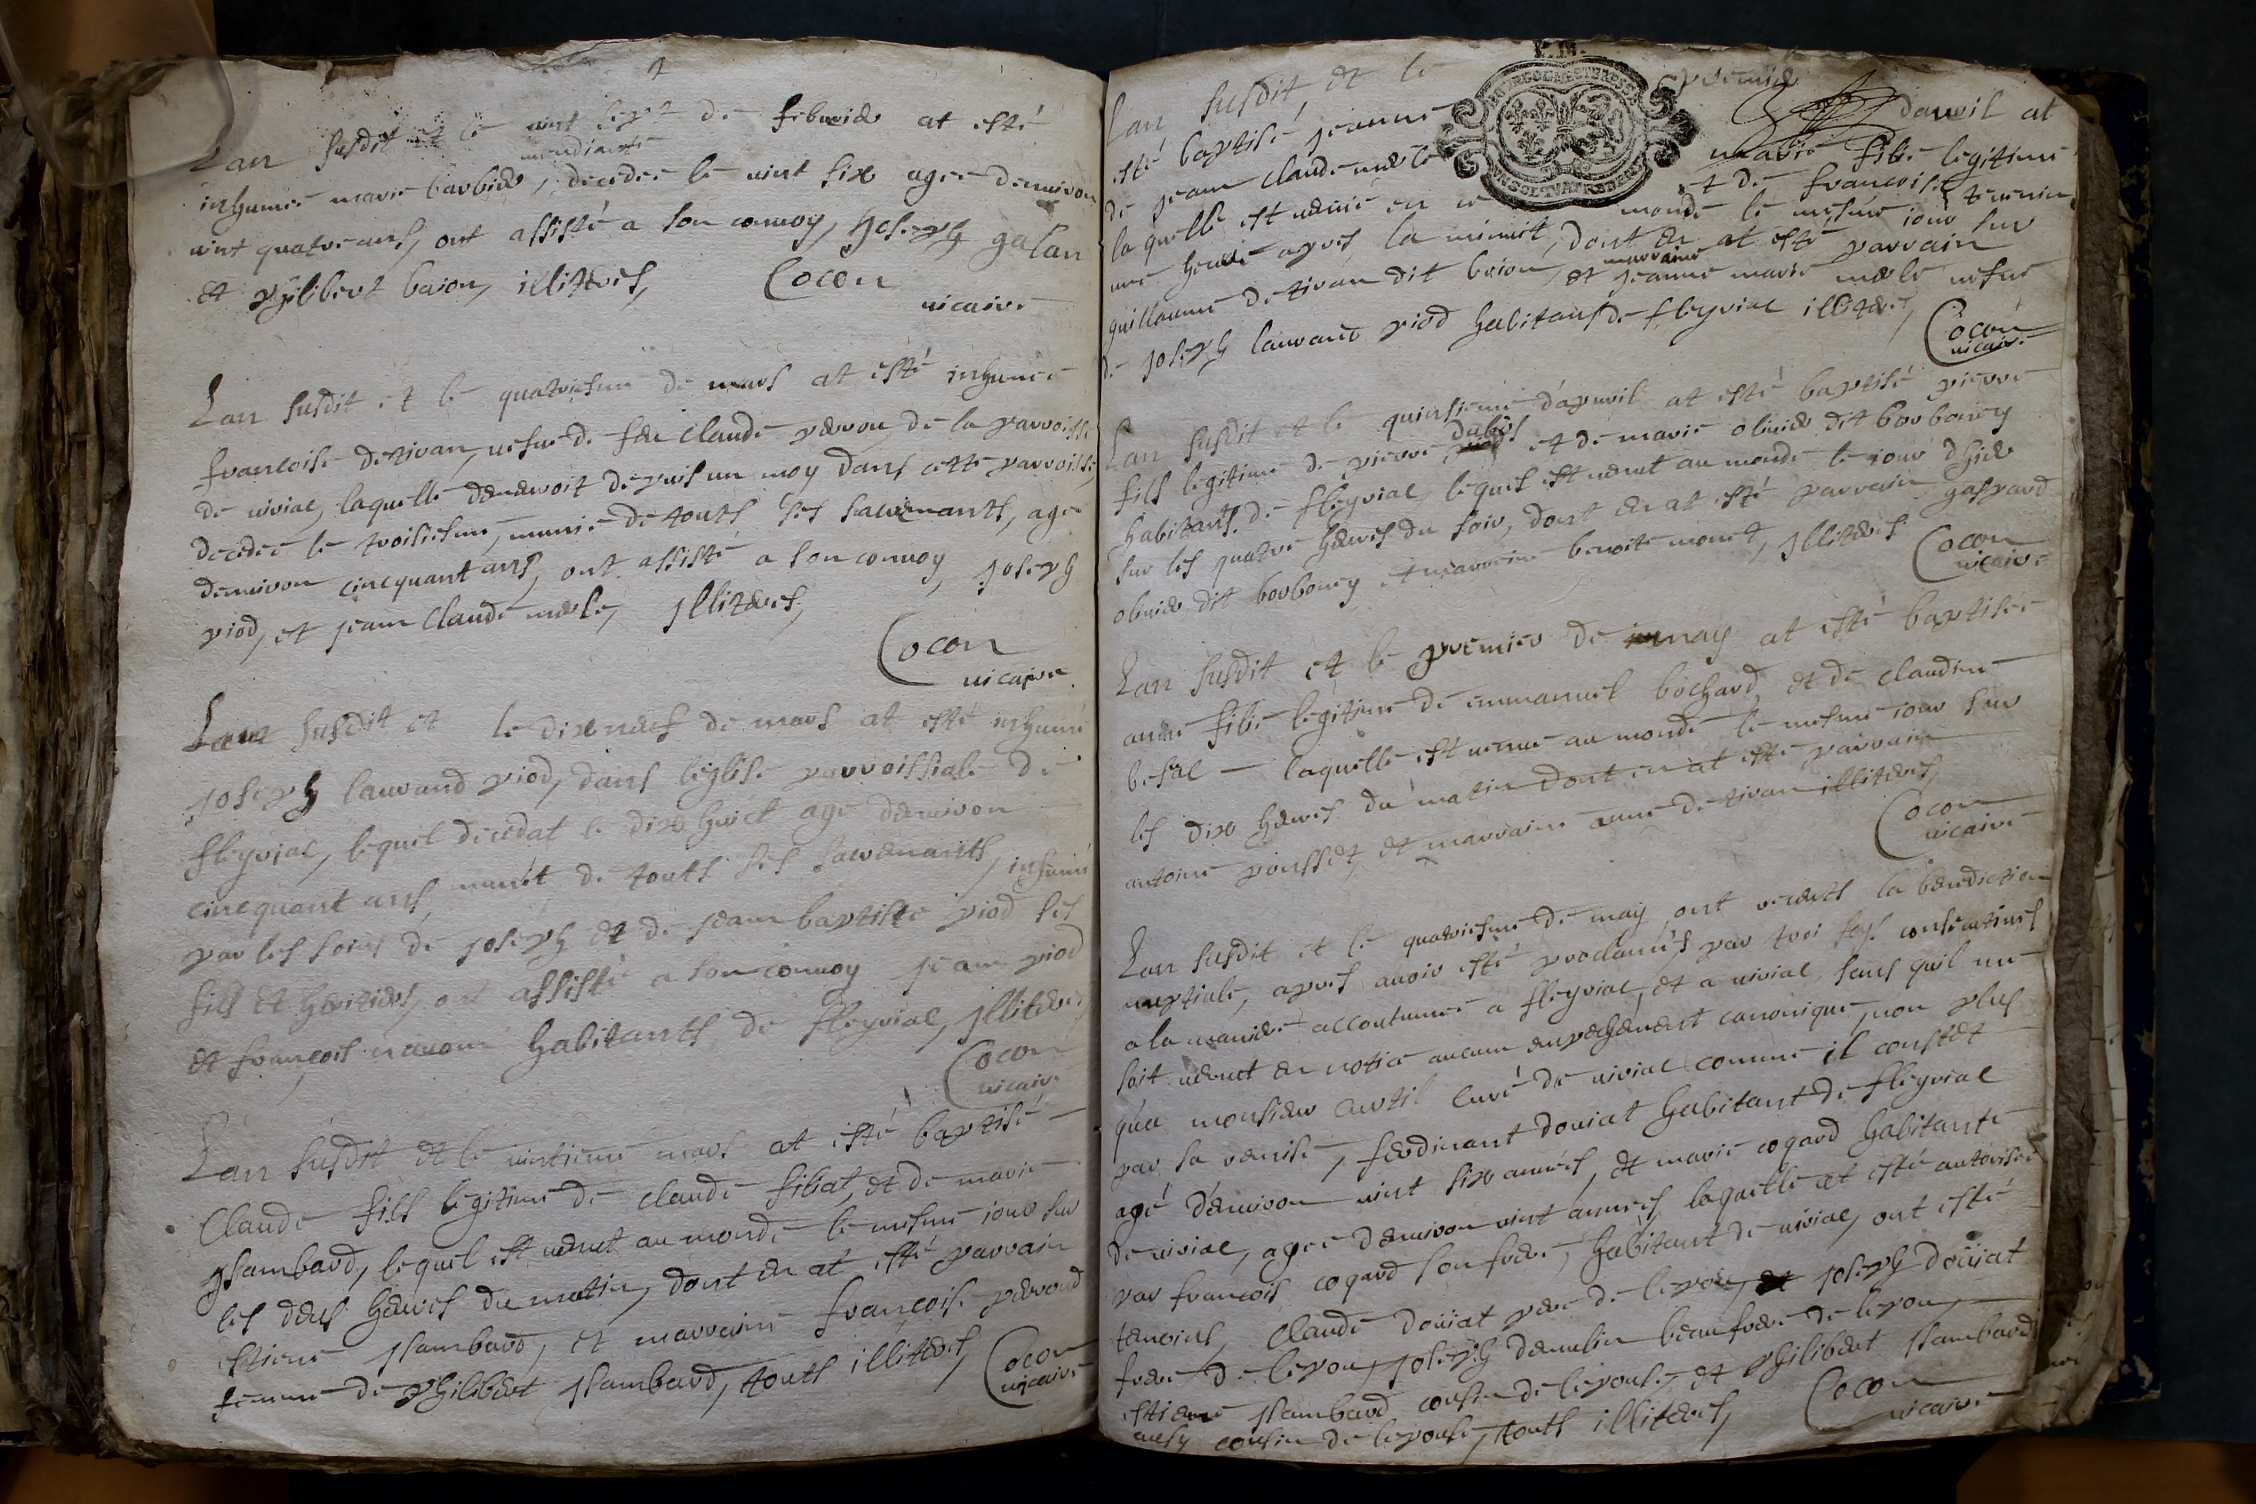 Lan susdit et le vint sept de febvrier at esté
mendiante
inhumée marie barbier, decedée le vint six agée denviron
vint quatre ans, ont assisté a son convoy, Joseph galan
et philibert baion, illiteres,
Cocon
vicaire
Lan susdit et le quatriesme de mars at esté inhumée
francoise detivan, vefve de feu claude perrou de la parroisse
de viriac, laquelle demeuroit depuis un moy dans cette parroisse,
decedée le troisiesme, munie de touts ses sacrements, agée
denviron cincquant ans, ont assisté a son convoy, Joseph
piod, et jean claude merle, Illiteres,
Cocon
vicaire
Lan susdit et le dixneuf de mars at esté inhumé
Joseph lauvand piod, dans leglise parroissiale de
fleyriac, lequel decedat le dix huict agé denviron
cincquant ans, munit de touts ses sacrements, inhumé
par les soins de Joseph et de jean baptiste piod ses
fils et heritiers, ont assisté a son convoy jean piod
et francois habitants de fleyriac, Illiteres
Cocon
vicaire
Lan susdit et le vintiesme mars at esté baptisé
Claude fils legitime de claude filiat, et de marie
Jsambard, lequel est venut au monde le mesme iour sur
les deus heures du matin, dont en at esté parrain
estiene Jsambard, et marraine francoise perroud
femme de philibert Jsambard, touts illiteres,
Cocon
vicaire
F. M.
Lan susdit et le premier
davril at
esté baptisé jeanne marie fille legitime
de jean claude merle et de francoise tevenin,
laquelle est venue en ce monde le mesme iour sur
une heure apres la minuit, dont en at esté parrain
marraine
guillaume detivan dit brion, et jeanne marie merle vefve
de Joseph lauvand piod habitans de fleyriac illiteres,
Cocon
vicaire
Lan susdit et le quinsiesme d'apvril at esté baptisé pierre
dubois
fils legitime de pierre et de marie olivier dit borboney
habitants de fleyriac, lequel est venut au monde le iour d'hier
sur les quatre heures du soir, dont en at esté parrain gaspard
olivier dit borboney et marraine benoite monet, Illiteres
Cocon
vicaire
Lan susdit et le premier de may at esté baptisée
anne fille legitime de emmanuel bochard et de claudine
besac laquelle est venue au monde le mesme iour sur
les dix heures du matin dont en at esté parrain
antoine pousset, et marraine anne detivan illiteres,
Cocon
vicaire
Lan susdit et le quatriesme de may ont receuts la benediction
nuptiale, apres avoir esté proclamés par troi foys consecutives
a la maniere accoutumée a fleyriac, et a viriac sans quil me
soit venut en notice aucun empechement canonique, non plus
qua monsieur curtil curé de viriac comme il constet
par sa remise, ferdinant douiat habitant de fleyriac
agé denviron vint six années, et marie cogard habitante
de viriac, agée denviron vint années, laquelle at esté autorisée
par francois cogard son frere, habitant de viriac, ont esté
temoins, claude douiat pere de lepou, Joseph douiat
frere de lepou, Joseph demulin beaufrere de lepou,
estiene Jsambard cousin de lepouse, et philibert Jsambard
ausy cousin de lepouse, touts illiteres,
Cocon
vicaire